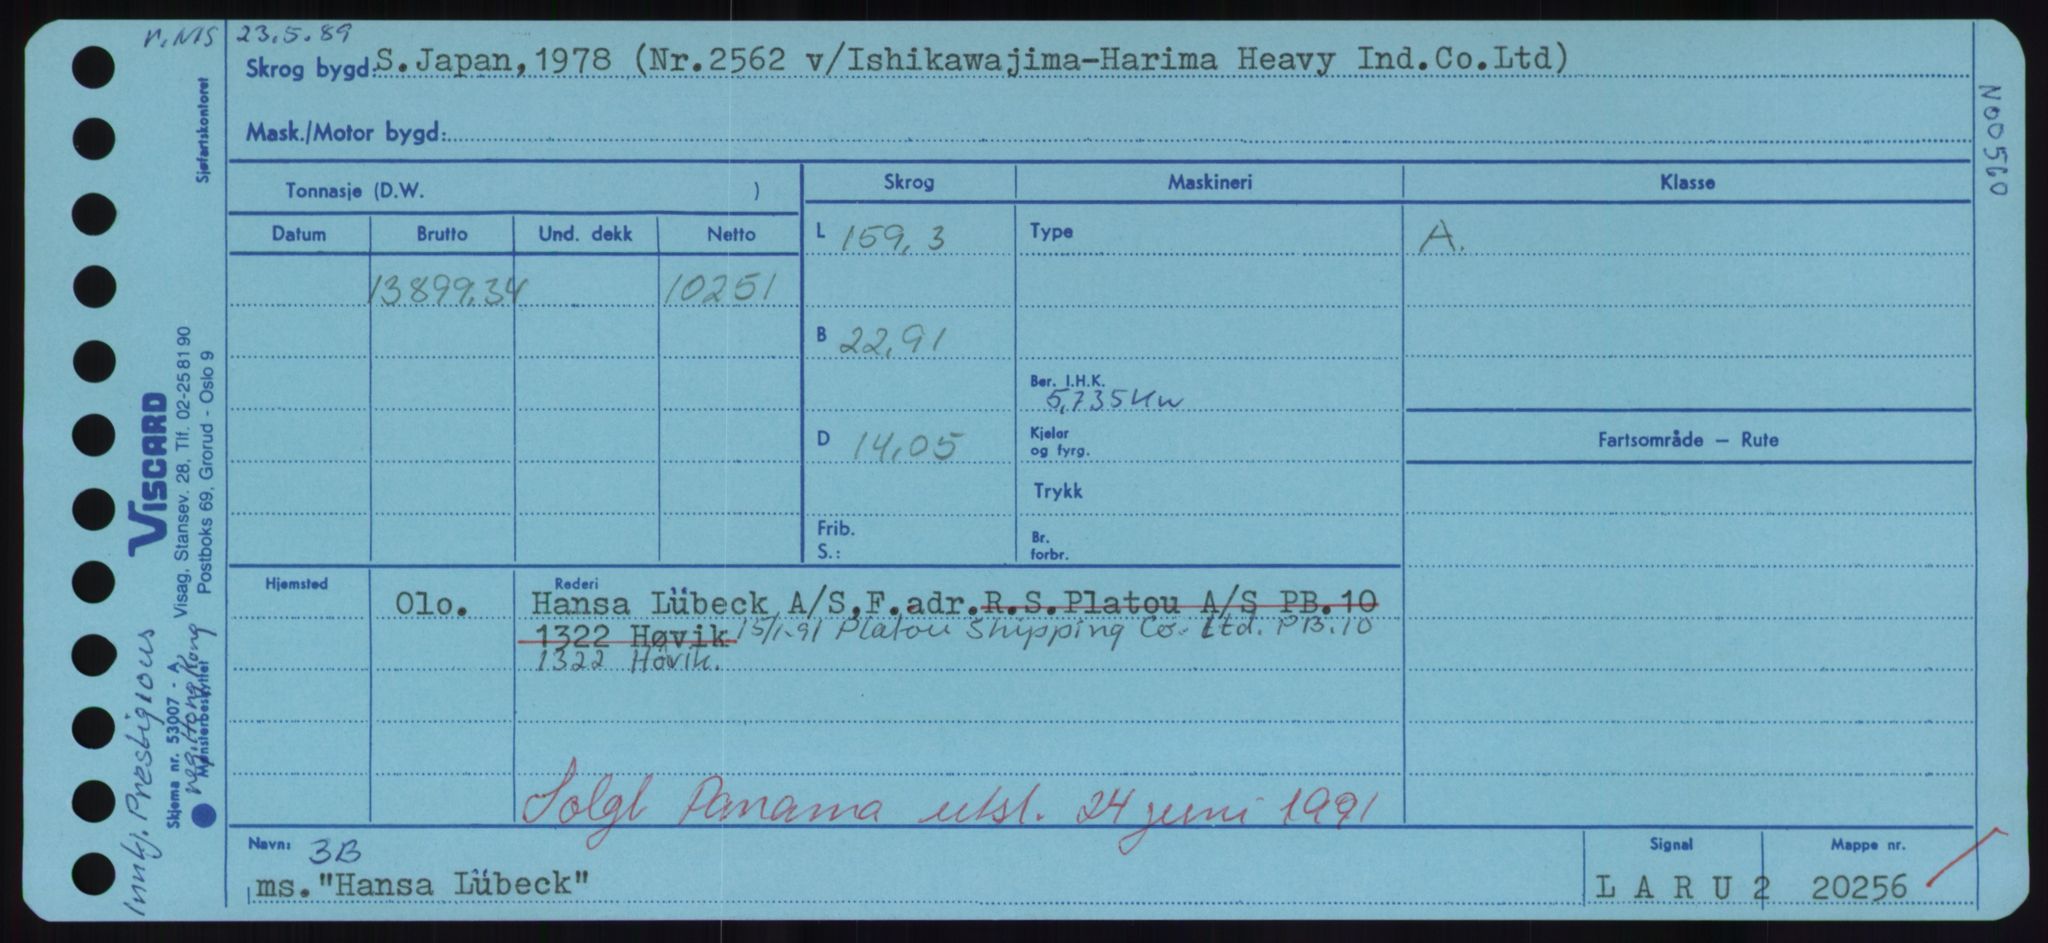 n.MS 23.5.89
Skrog bygd: S.Japan,1978 (Nr.2562 v/Ishikawajima-Harima Heavy Ind.Co.Ltd)
Mask./Motor bygd:
Tonnasje (D.W. )
Skrog Maskineri Klasse
Datum Brutto Und. dekk Netto
L 159,3 Type A.
13899.34 10251
B 22,91
Ber. I.H.K.
5,735 Kw
D 14,05
Kjeler
og fyrg.
Fartsområde – Rute
Trykk
Frib.
S.:
Br.
forbr.
Hjemsted Rederi
Olo. Hansa Lübeck A/S,F.adr.R.S.Platou A/S PB.10
1322 Høvik 15/1-91 Platou Shipping Co. Ltd. PB.10
1322 Høvik.
Solgt Panama utst. 24 juni 1991
Navn: 3B Signal Mappe nr.
ms."Hansa Lübeck" L A R U 2 20256
N00560
Sjøfartskontoret
VISCARD
Visag, Stansev. 28, Tlf. 02-25 81 90
Postboks 69, Grorud - Oslo 9
Skjema nr. 53007 - A
Mønsterbeskyttet
Innkj. Prestigious
reg. Hong Kong